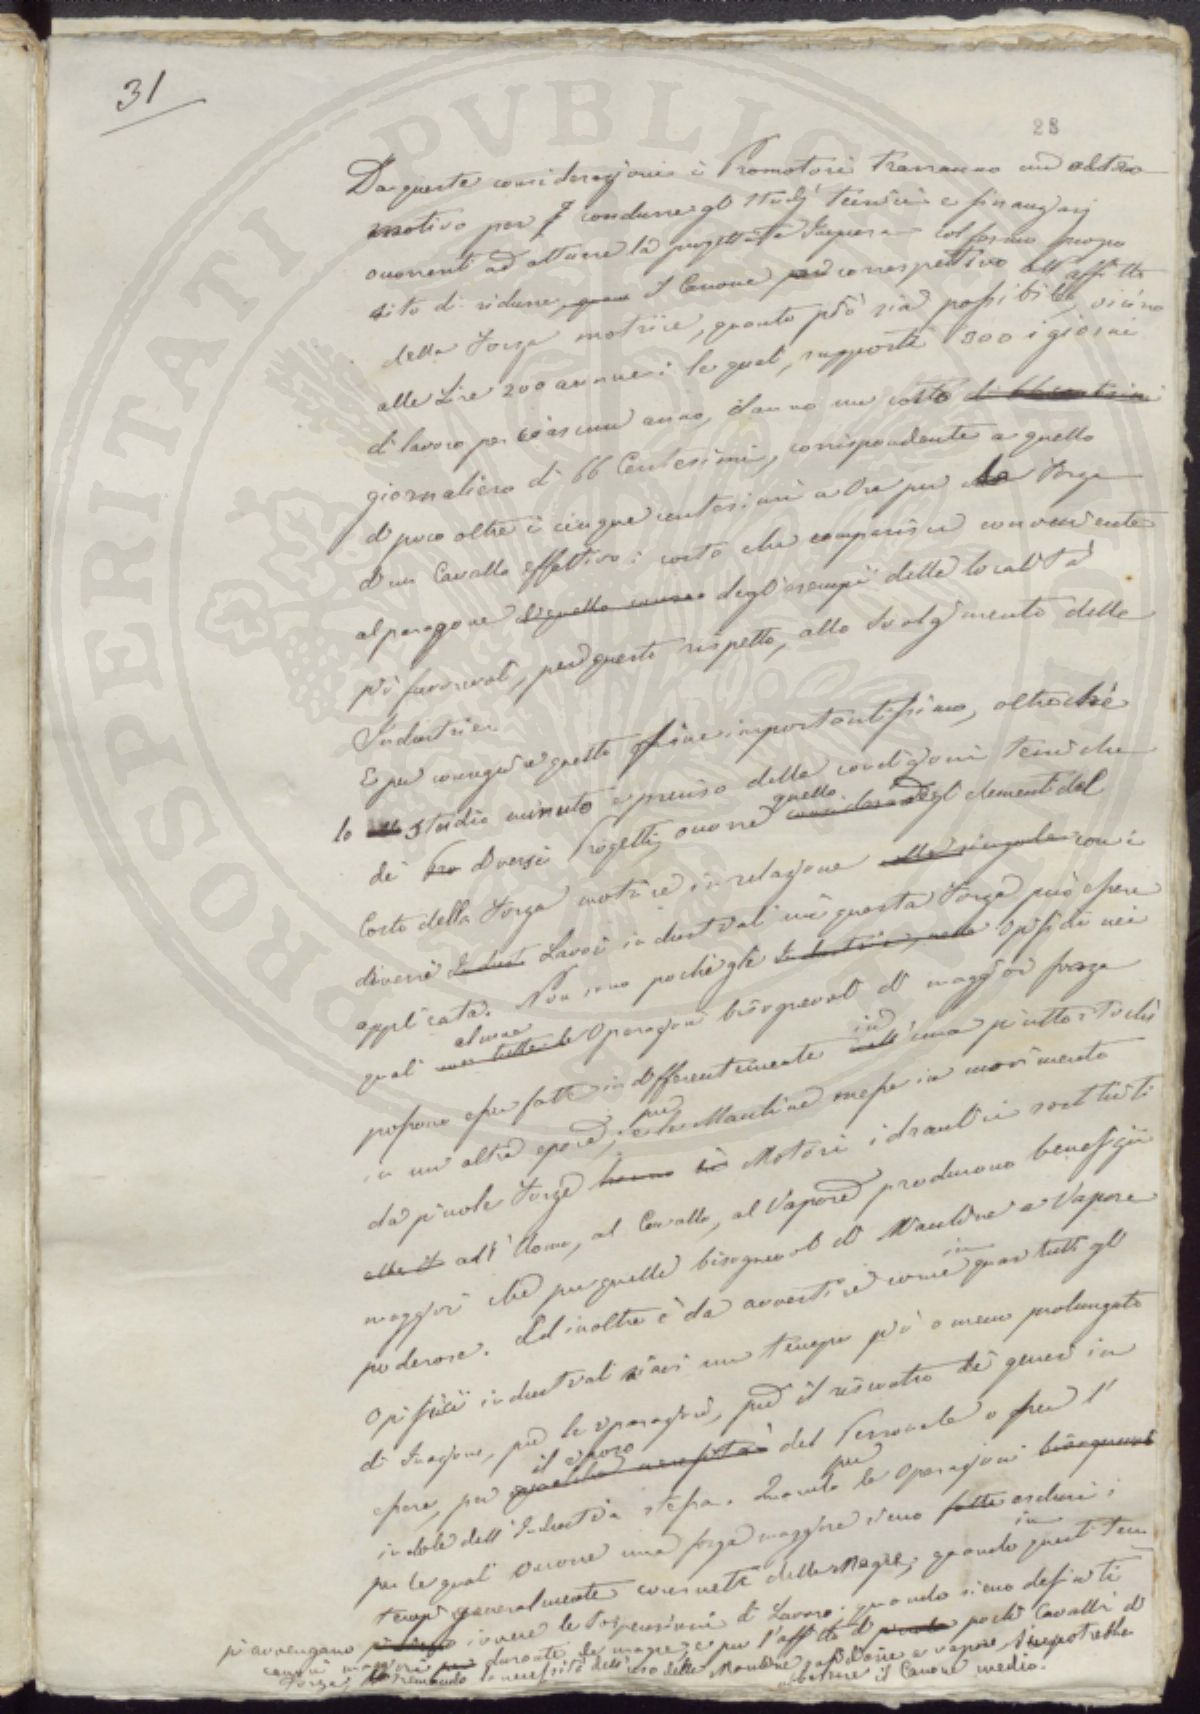 31
28
Da queste considerazioni i Promotori trarranno un altro
motivo per condurre gli studj tecnici e finanziarj
occorrenti ad attuare la progettata Impresa col fermo propo
sito di ridurre, il Canone corrispettivo all'affitto
della Forza motrice, quanto più sia possibile, vicino
alle Lire 200 annue; le quali, supposti 300 i giorni
di lavoro per ciascun anno, danno un costo di 66 centesimi
giornaliero di 66 Centesimi, corrispondente a quello
di poco oltre i cinque centesimi a Ora per la Forza
d'un Cavallo effettivo; costo che comparisce conveniente
al paragone di quello degli esempii delle località
più favorevoli, per questo rispetto, allo svolgimento delle
Industrie.
E per conseguire questo fine importantissimo, oltrechè
lo studio minuto e preciso delle condizioni tecniche
quello
di Pro Diversi Progetti, occorre considerare degli elementi del
Costo della Forza motrice in relazione alle singole con i
diversi Indust Lavori industriali cui questa Forza può essere
applicata. Non sono pochi gli Industrie, nelle Opifici nei
alcune
quali non tutte le Operazioni bisognevoli di maggior forza
in
possono esser fatte indifferentemente nell' una piuttostochè
per
in un' altra epoca; e le Macchine messe in movimento
da piccole Forze hanno Motori idraulici sostituiti
all'Uomo, al Cavallo, al Vapore producono benefizii
maggiori che per quelle bisognevoli di Macchine a Vapore
in
poderose. Ed inoltre è da avvertire come quasi tutti gli
Opificii industriali siavi un tempo più o meno prolungato
di Inazione, per le riparazioni, per il riscontro dei generi in
il riposo
essere, per qualche necessità del Personale o per l'
per
indole dell'Industria stessa. Quando le Operazioni bisognevoli
per le quali occorre una forza maggiore sieno fatte escluse i
in
tempi generalmente consueti delle Magre; quando questi tem
pi avvengano invece le Sospensioni di Lavoro; quando sieno definiti
canoni maggiori durante le magre, e per l'affitto di piccole pochi Cavalli di
Forza, la necessità dell'uso delle Macchine a vapore si potrebbe
ottenere il Canone medio.
PROSPERITATI PVBLICAE